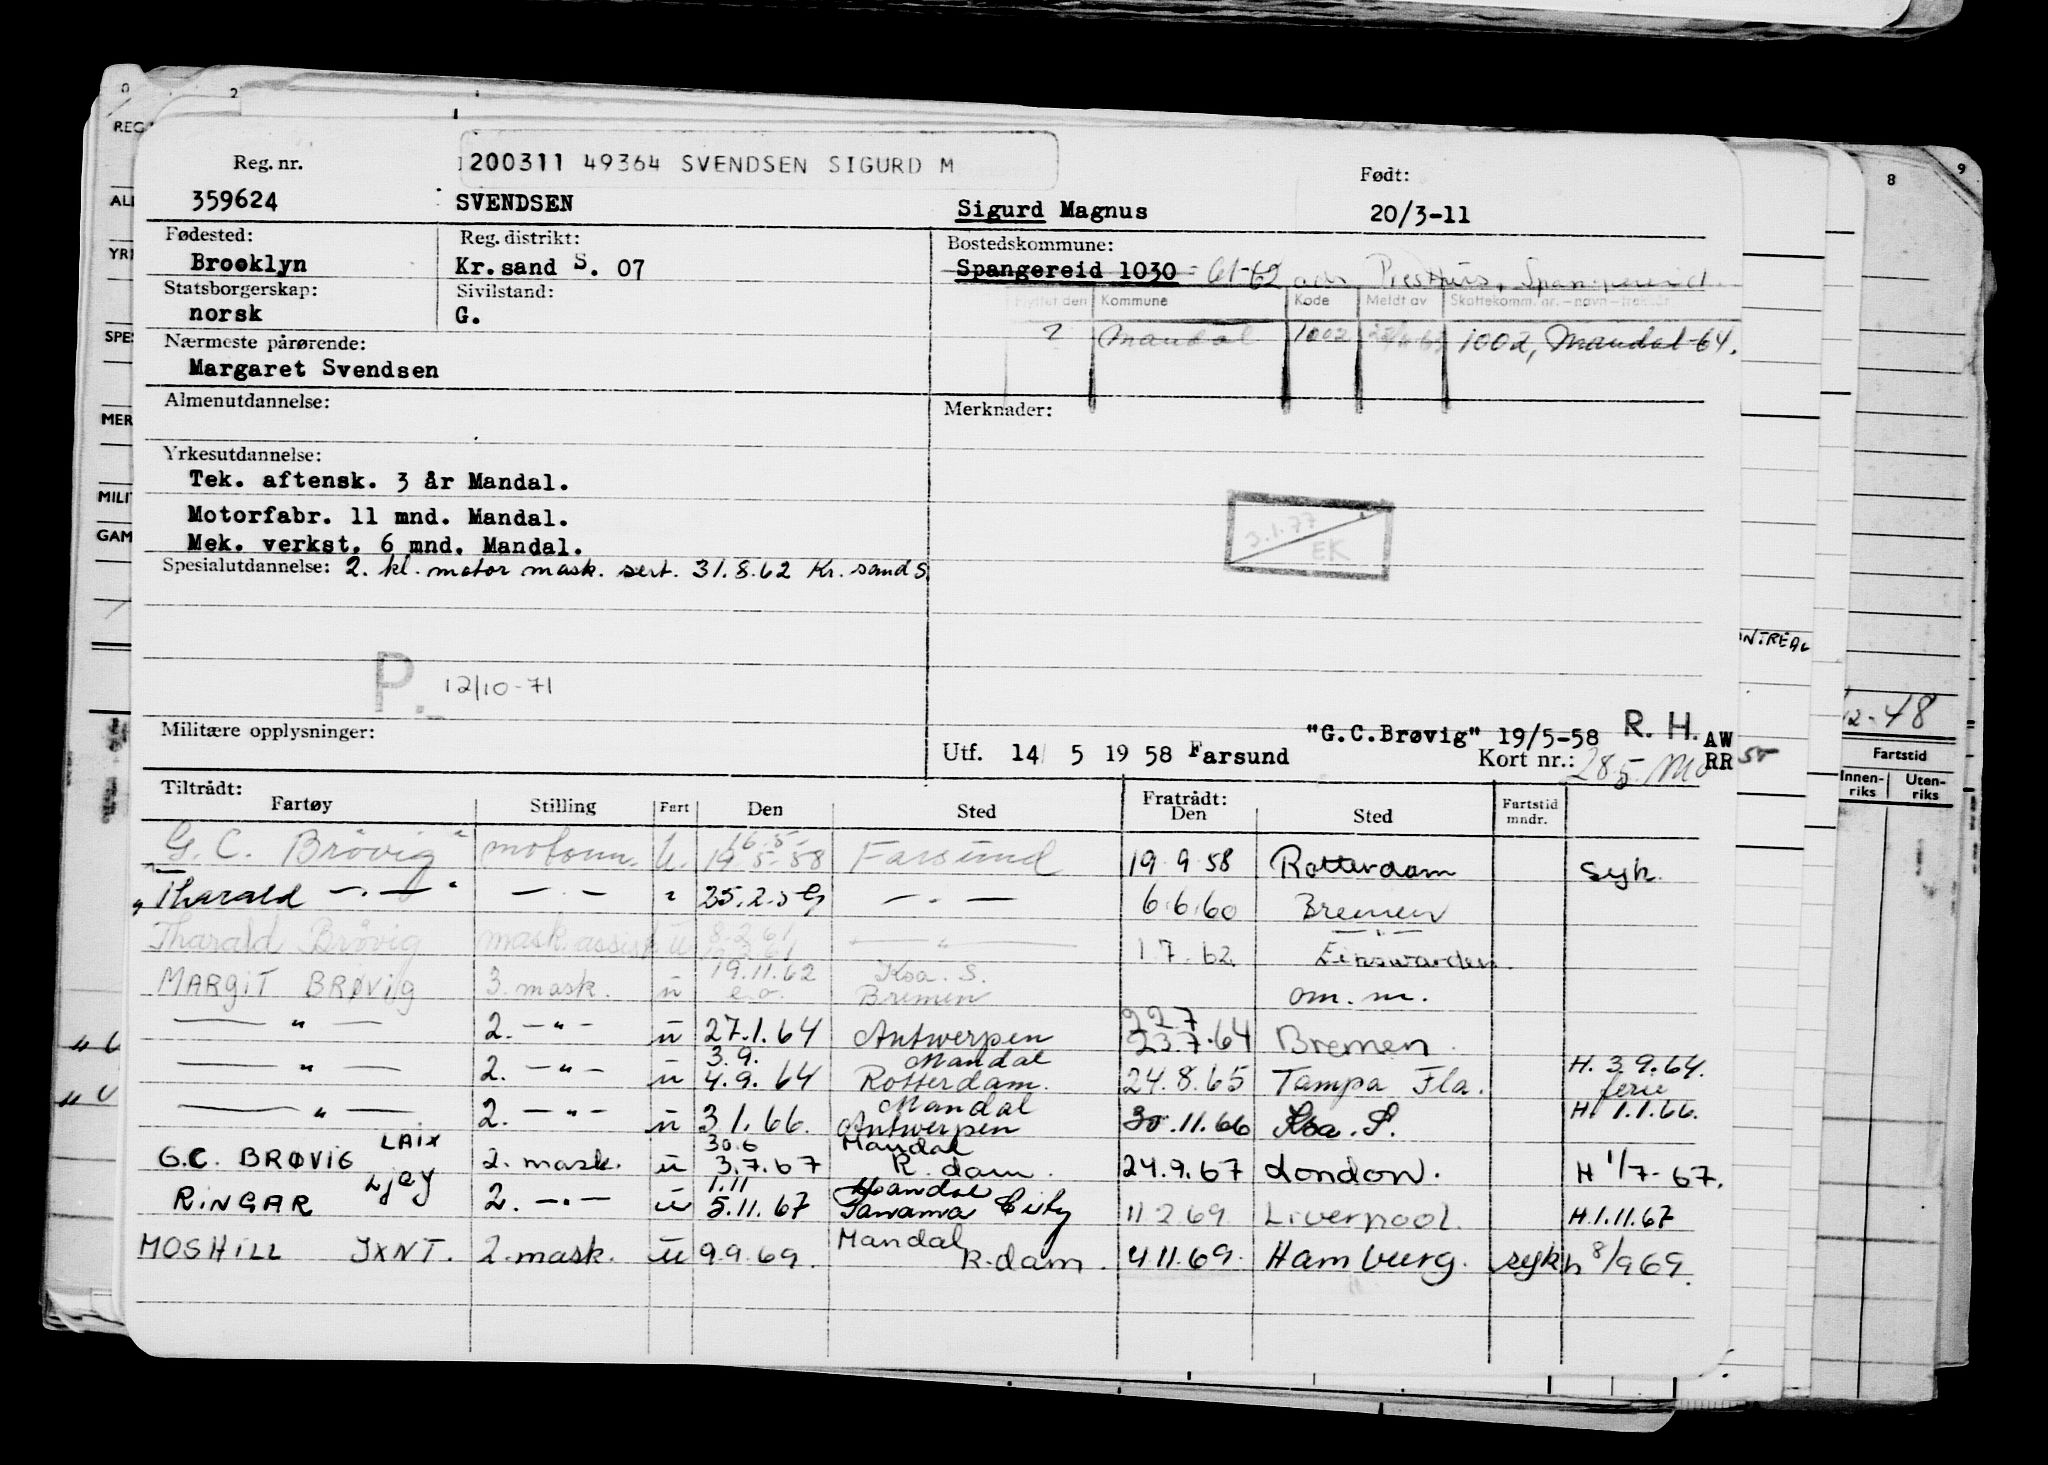 Reg. nr.
200311 49364 SVENDSEN SIGURD M
Født:
359624 SVENDSEN Sigurd Magnus 20/3-11
Fødested: Reg. distrikt: Bostedskommune:
Brooklyn Kr.sand S. 07 Spangereid 1030 - 61-62
Statsborgerskap: Sivilstand: Flyttet den Kommune Kode Meldt av Skattekomm. nr. – navn –
norsk G. 2 Mandal 1002 1002, Mandal-64.
Nærmeste pårørende:
Margaret Svendsen
Almenutdannelse: Merknader:
Yrkesutdannelse:
Tek. aftensk. 3 år Mandal.
Motorfabr. 11 mnd. Mandal.
Mek. verkst. 6 mnd. Mandal.
3.1.77
EK
Spesialutdannelse: 2. kl. motor mask. sert. 31.8.62 Kr. sand S.
P. 12/10-71
Militære opplysninger:
"G.C.Brøvig" 19/5-58 R. H. AW
Utf. 14 5 19 58 Farsund Kort nr.: RR
Tiltrådt: Fratrådt:
Fartøy Stilling Fart Den Sted Den Sted Fartstid mndr.
16.5.
"G. C. Brövig" motorm. U. 19.5.58 Farsund 19.9.58 Rotterdam syk.
"Tharald —.—" —.— " 25.2.59 —.— 6.6.60 Bremen
8.2.61
Tharald Brövig mask.assist ü —"— 1.7.62 Einswarden.
19.11.62 Ksa. S.
MARGIT BRØVIG 3. mask. ü e.o. Bremen om. m.
22.7
—"— 2. —"— ü 27.1.64 Antwerpen 23.7.64 Bremen.
3.9. Mandal H. 3.9.64.
—"— 2. —"— ü 4.9.64 Rotterdam. 24.8.65 Tampa Fla. ferie
Mandal H. 1.1.66.
—"— 2. —"— ü 3 1.66. Antwerpen 30.11.66 Ksa. S.
LAIX 30.6 Mandal
G.C. BRØVIG 2. mask. ü 3.7.67 R.dam. 24.9.67 London. H 1/7-67.
LJEY 1.11 Mandal
RINGAR 2. —"— ü 5.11.67 Panama City 11 2 69 Liverpool. H.1.11.67
Mandal
MOSHILL JXNT. 2.mask. ü 9.9.69. R.dam. 4.11.69. Hamburg. syk h 8/9 69.
REG
ALL
YRK
SPES
MER
MILIT
GAM
8
9
ONTREAL
12-48
Fartstid
Innen-riks Uten-riks